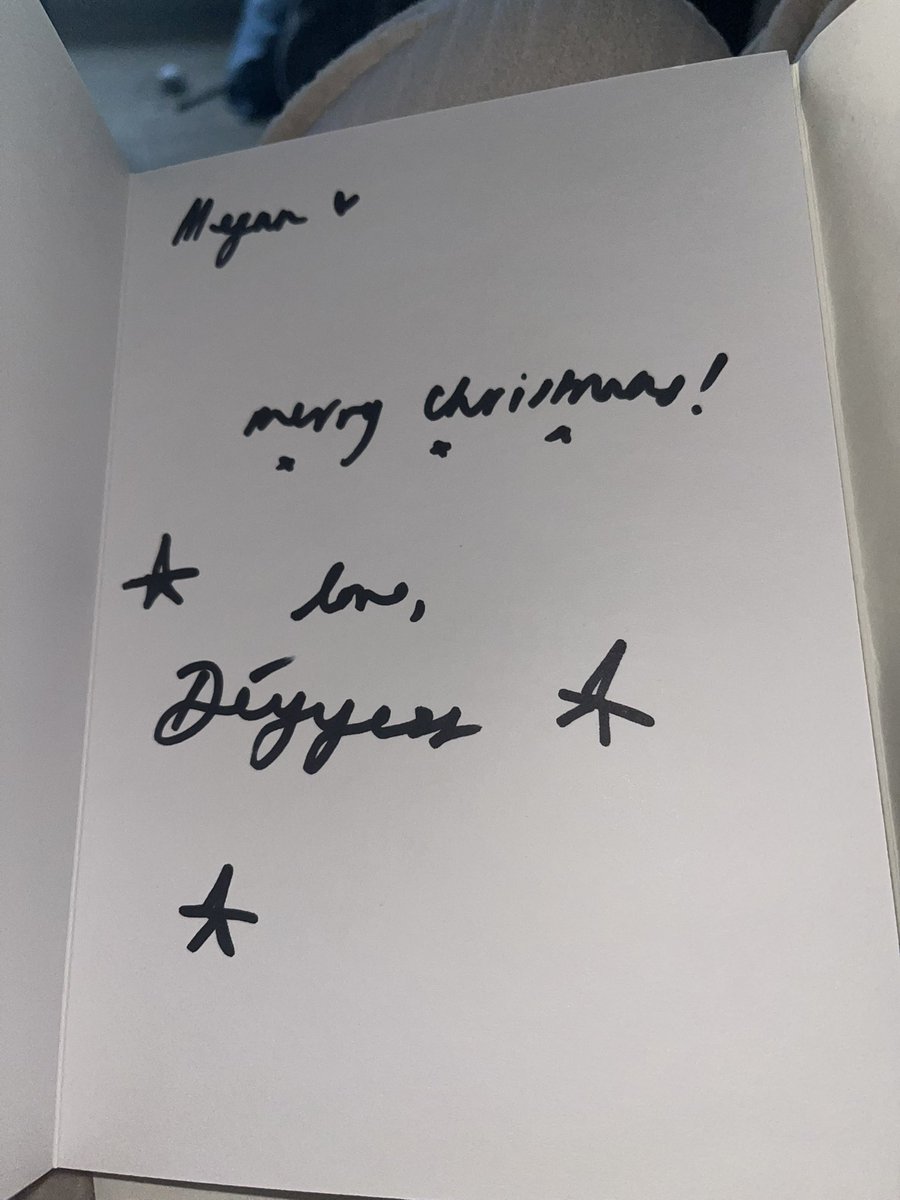 Megan ♥
merry christmas!
love,